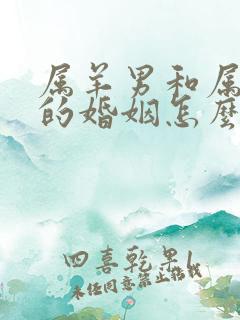 属羊男和属
的婚姻怎麽
四喜乾果1
未经同意禁止搭载